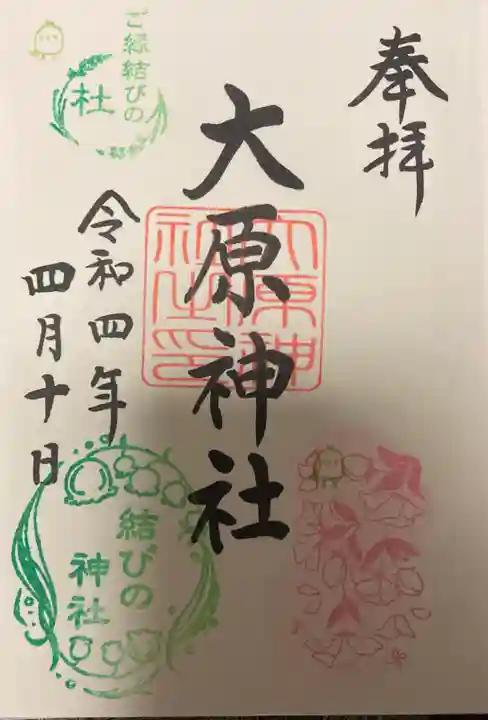 奉拝
大原神社
大原神
社之印
令和四年
四月十日
ご縁結びの
杜
結びの
神社